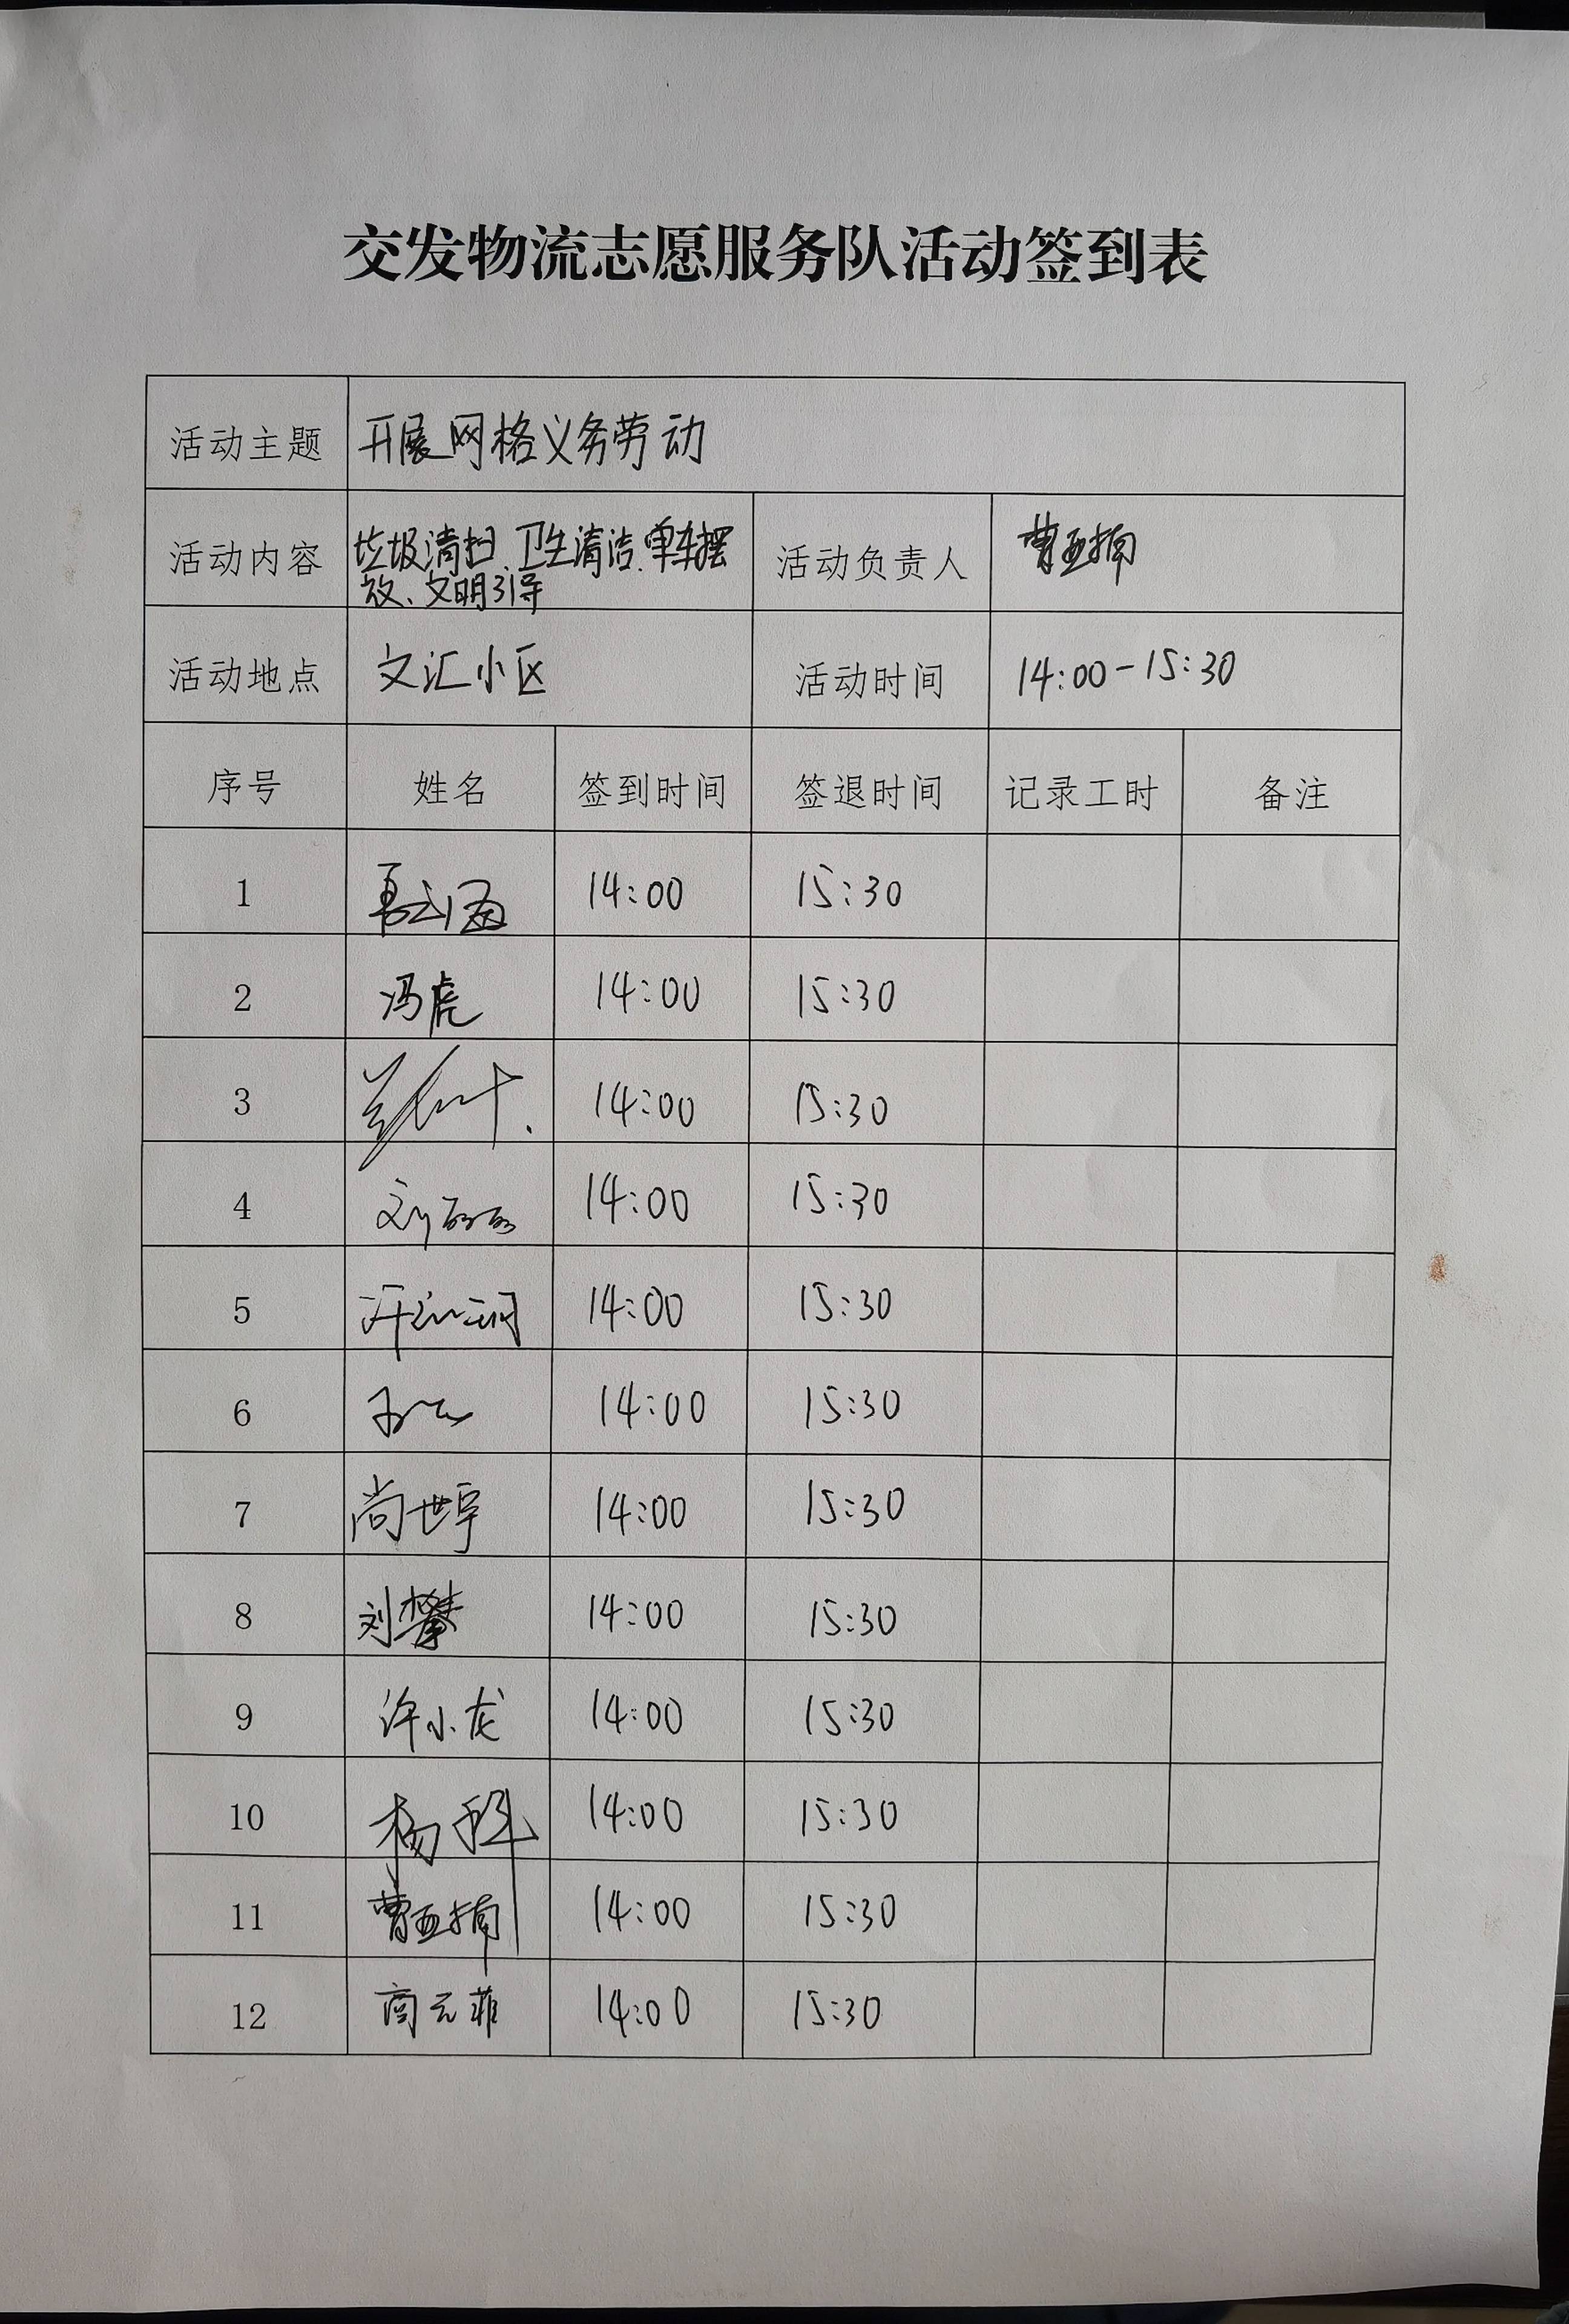 交发物流志愿服务队活动签到表
活动主题 开展网格义务劳动
活动内容 垃圾清扫、卫生清洁、单车摆
放、文明引导 活动负责人 曹亚楠
活动地点 文汇小区 活动时间 14:00-15:30
序号 姓名 签到时间 签退时间 记录工时 备注
1 14:00 15:30
2 冯虎 14:00 15:30
3 14:00 15:30
4 刘丽丽 14:00 15:30
5 14:00 15:30
6 14:00 15:30
7 尚世宇 14:00 15:30
8 刘攀 14:00 15:30
9 许小龙 14:00 15:30
10 杨科 14:00 15:30
11 曹亚楠 14:00 15:30
12 商元菲 14:00 15:30